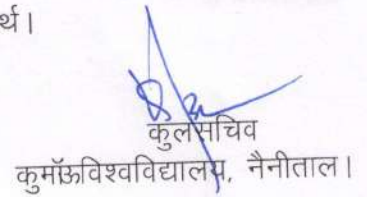 र्थ।
कुलसचिव
कुमॉऊविश्वविद्यालय, नैनीताल।